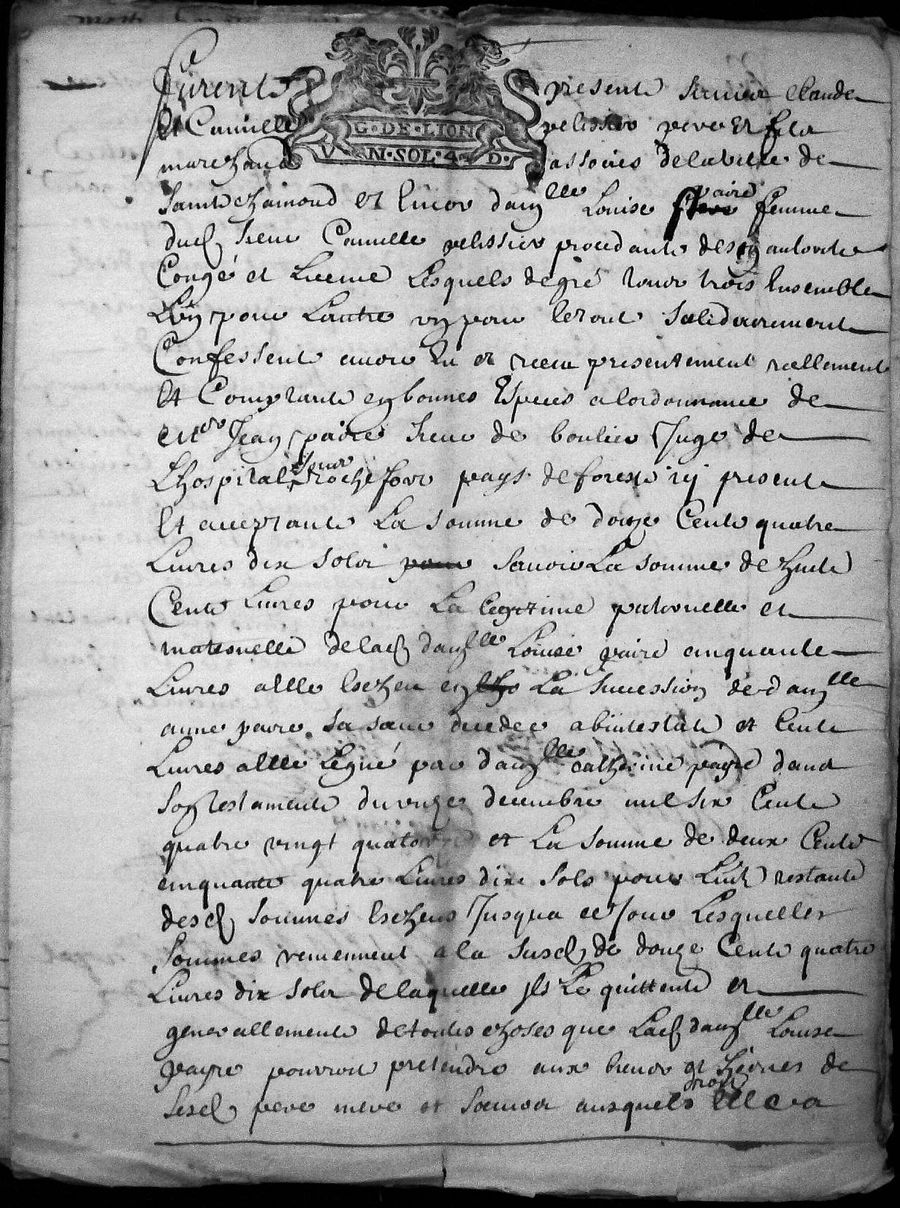 G·DE·LION
V N·SOL·4 D·
Furent present sieurs claude
Et Camille pelissier pere Et fils
marchands associés de la ville de
Saint chaimond Et Encor dauz.lle Louise paire femme
dud sieur Camille pelissier procedante de son authorite
Congé et Licence Lesquels de gré tous trois Ensemble
L'un pour Lautre un pour le tout Solidairement
Confessent avoir Eu et receu presentement reellement
Et Comptant en bonnes Especes a lordonnance de
Jean paire sieur de boulieu Juge de
Lhospital soux Rochefort pays de forest icy present
Et acceptant La somme de douze Cents quatre
Livres dix sols pour Savoir La somme de huit
Cents Livres pour La legitime paternelle et
maternelle de lad dauz.lle Louise paire cinquante
Livres a elle Escheu en La Succession de dauz.lle
anne paire Sa sœur decedee abintestate et Cents
Livres a elle Legué par dauz.lle catherine payre dans
son testament du unze decembre mil six Cents
quatre vingt quatorze et La somme de deux Cents
cinquante quatre Livres dix Sols pour restants
desd sommes Escheus Jusqua ce Jour Lesquelles
Sommes reviennent a la Susd de douze Cents quatre
Livres dix sols de laquelle ils Le quittent et
generallement de toutes choses que Lad dauz.lle Louise
payre pourroit pretendre aux biens et de
Sesd pere mere et Sœurs ausquels elle a